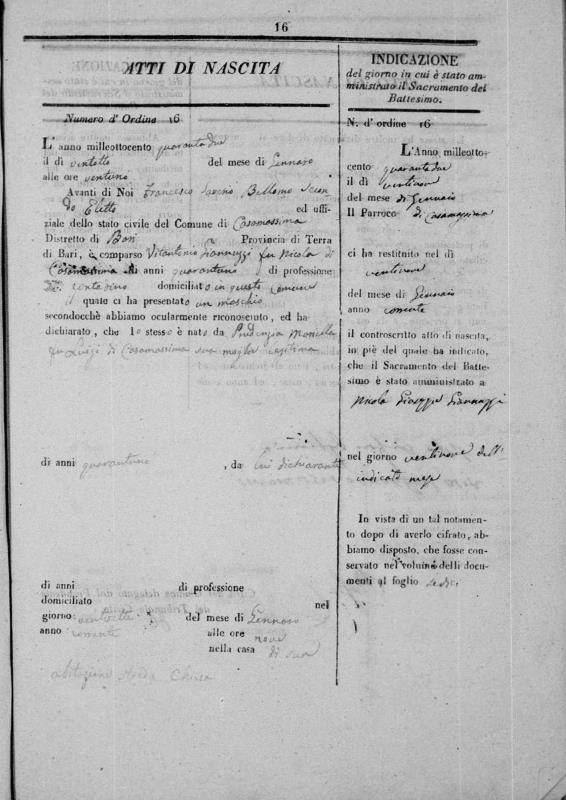 16
ATTI DI NASCITA
Numero d' Ordine 16
L' anno milleottocento quarantadue
il dì ventotto del mese di Gennaro
alle ore ventuno
Avanti di Noi Francesco Bellomo
do Eletto ed uffi-
ziale dello stato civile del Comune di Casamassima
Distretto di Bari Provincia di Terra
di Bari, è comparso Vitantonio Giannuzzi fu Nicola di
Casamassima di anni quarantuno di professione
contadino domiciliato in questo comune
il quale ci ha presentato un maschio
secondocchè abbiamo ocularmente riconosciuto, ed ha
dichiarato, che lo stesso è nato da Prudenzia
fu Luigi di Casamassima sua moglie legittima
di anni quarantuno , da lui dichiarante
di anni di professione
domiciliato nel
giorno ventotto del mese di Gennaro
anno corrente alle ore nove
nella casa di sua
abitazione Strada Chiesa
INDICAZIONE
del giorno in cui è stato am-
ministrato il Sacramento del
Battesimo.
N. d' ordine 16
L'Anno milleotto-
cento quarantadue
il dì ventinove
del mese di Gennaio
Il Parroco di Casamassima
ci ha restituito nel dì
ventinove
del mese di Gennaio
anno corrente
il controscritto atto di nascita,
in piè del quale ha indicato,
che il Sacramento del Batte-
simo è stato amministrato a
Nicola Giuseppe Giannuzzi
nel giorno ventinove dell'
indicato mese
In vista di un tal notamen-
to dopo di averlo cifrato, ab-
biamo disposto, che fosse con-
servato nel volume delli docu-
menti al foglio sedici